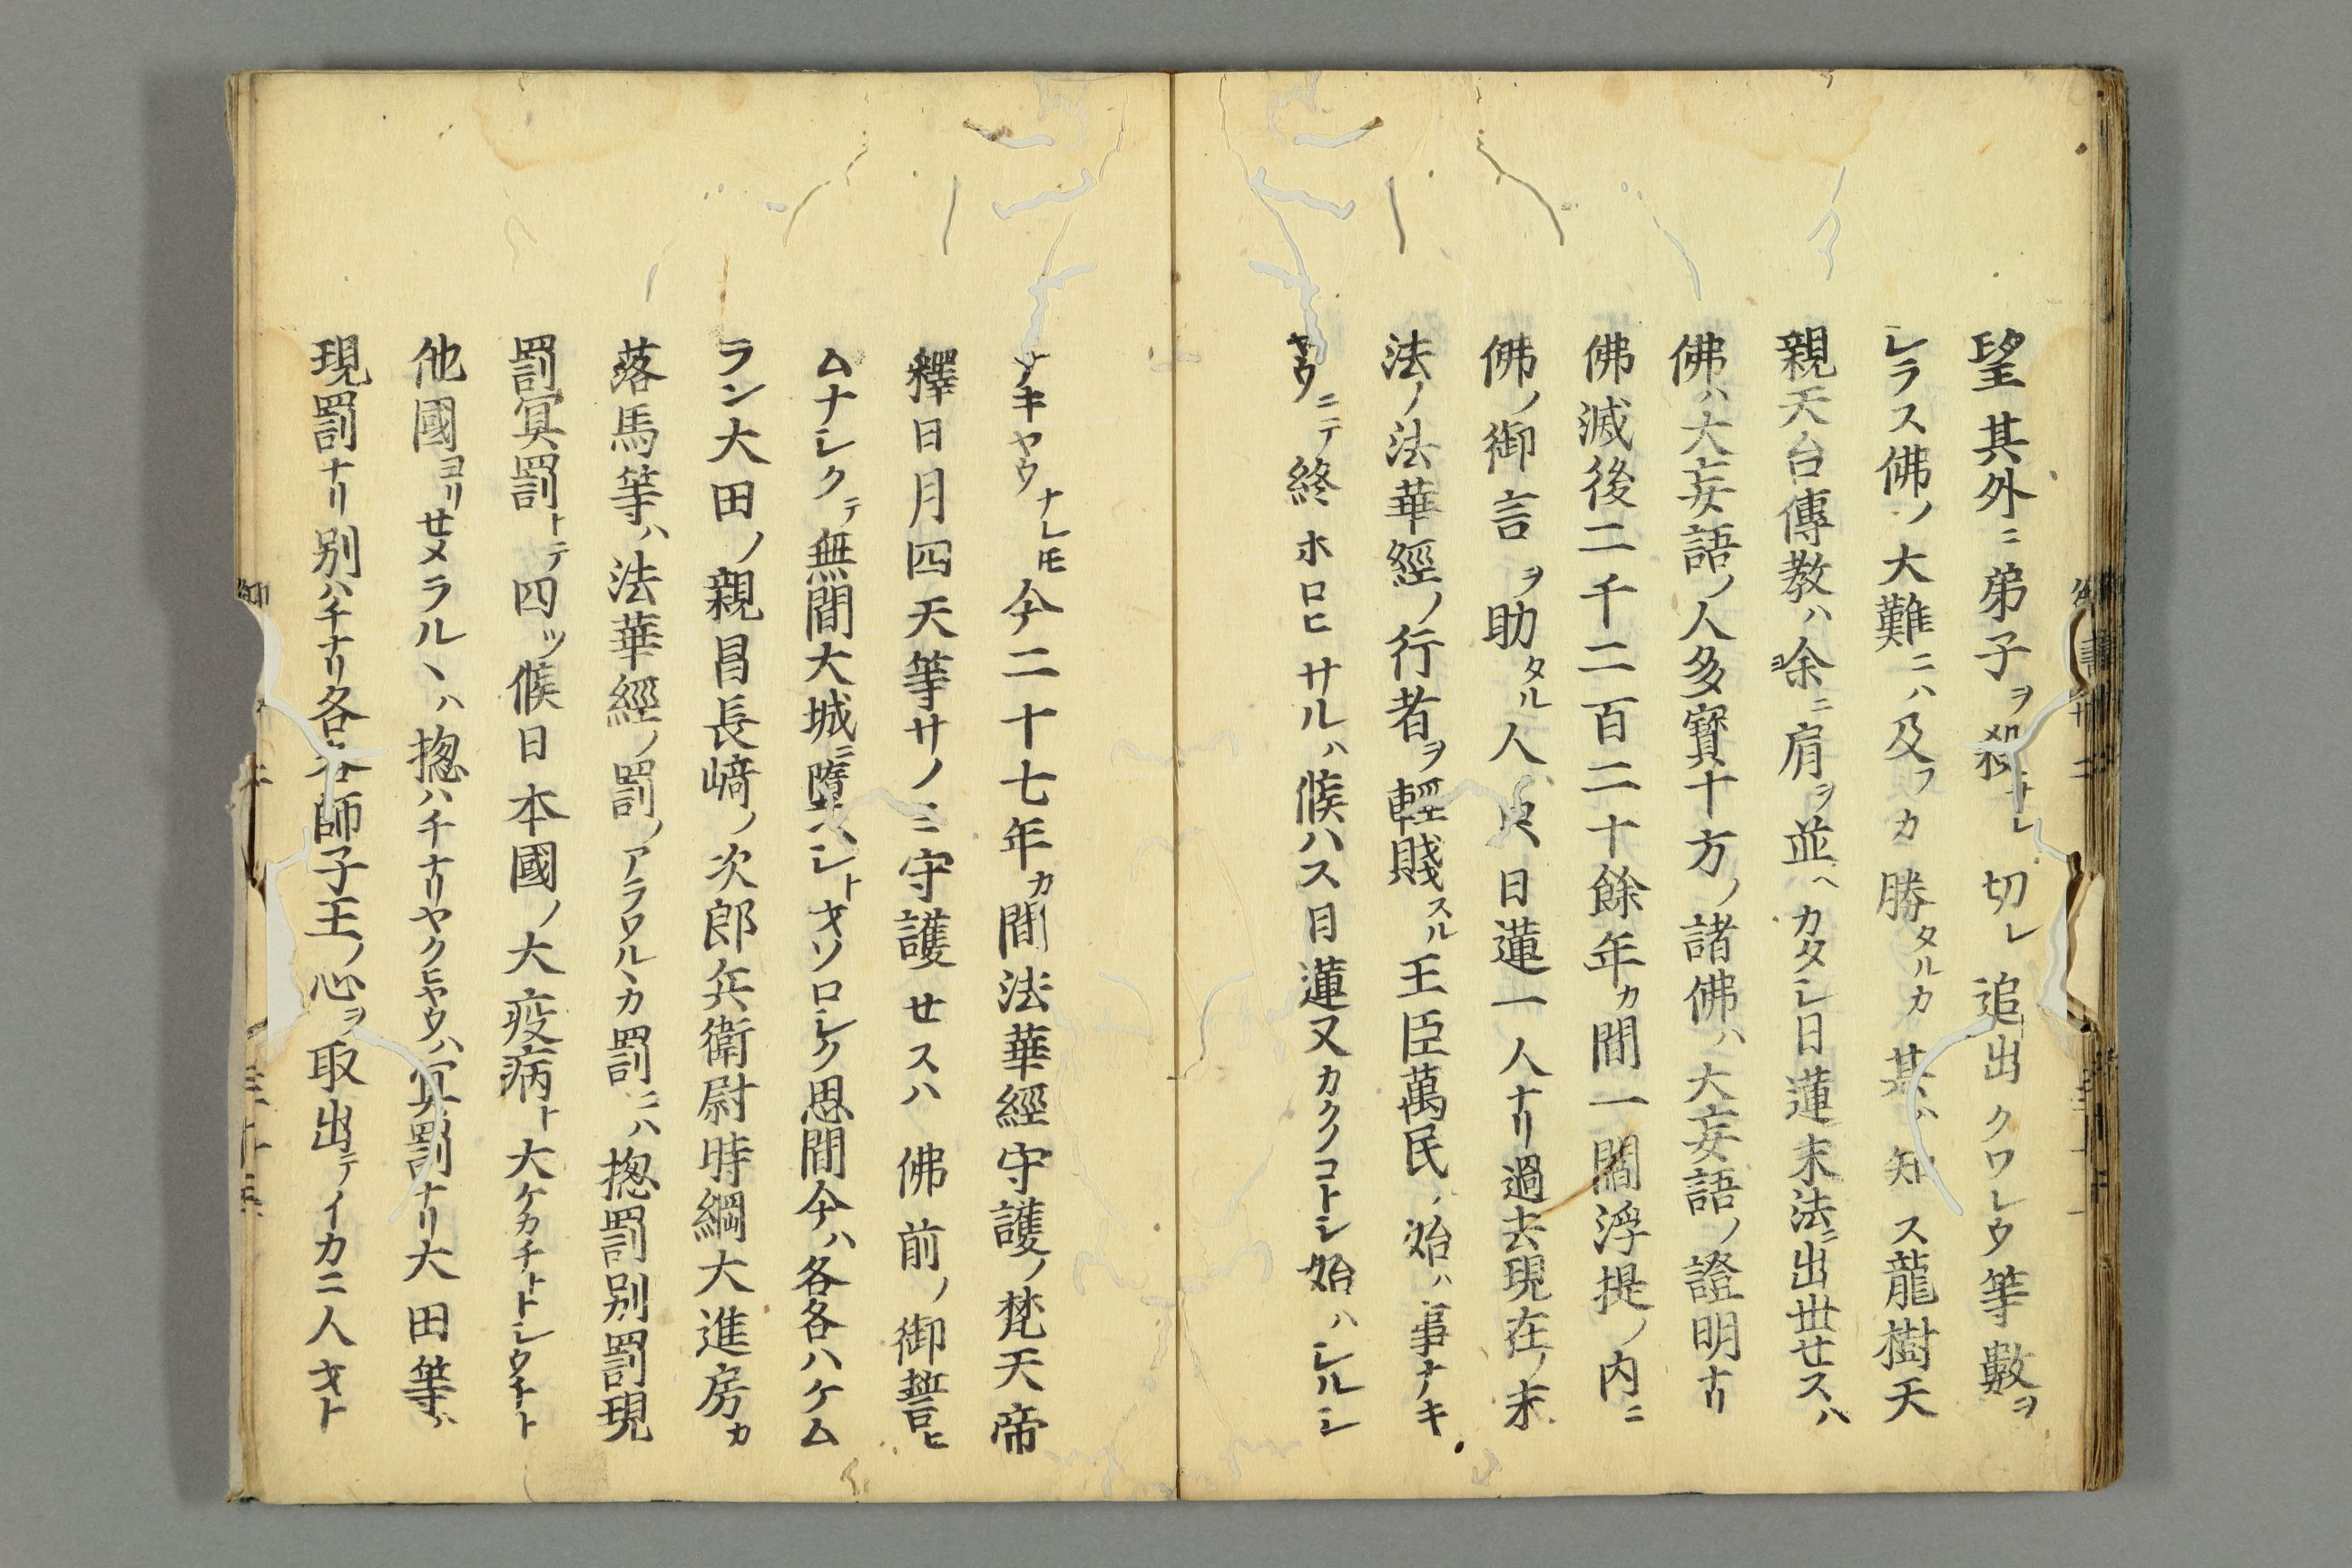 望其外ニ弟子ヲ殺サレ切レ追出クワレウ等數ヲ
レラス佛ノ大難ニハ及フカ勝タルカ其ハ知ス龍樹天
親天台傳教ハ余ニ肩ヲ並ヘカタシ日蓮末法ニ出世セスハ
佛ハ大妄語ノ人多寳十方ノ諸佛ハ大妄語ノ證明ナリ
佛滅後二千二百二十餘年カ間一閻浮提ノ内ニ
佛ノ御言ヲ助タル人但日蓮一人ナリ過去現在ノ末
法ノ法華經ノ行者ヲ輕賤スル王臣萬民ノ始ハ事ナキ
ヤウニテ終ホロヒサルハ候ハス日蓮又カクノコトシ始ハシルシ
ナキヤウナレ𪜈今二十七年カ間法華經守護ノ梵天帝
釋日月四天等サノミ守護セスハ佛前ノ御誓ヒ
ムナシクテ無間大城ニ墮ヘシトオソロシク思間今ハ各各ハケム
ラン大田ノ親昌長﨑ノ次郎兵衛尉時綱大進房カ
落馬等ハ法華經ノ罰ノアラワルヽカ罰ニハ揔罰別罰現
罰冥罰トテ四ツ候日本國ノ大疫病ト大ケカチトトシウチト
他國ヨリせメラルヽハ揔ハチナリヤクヒヤウハ冥罰ナリ大田等ハ
現罰ナリ別ハチナリ各各師子王ノ心ヲ取出テイカニ人オト